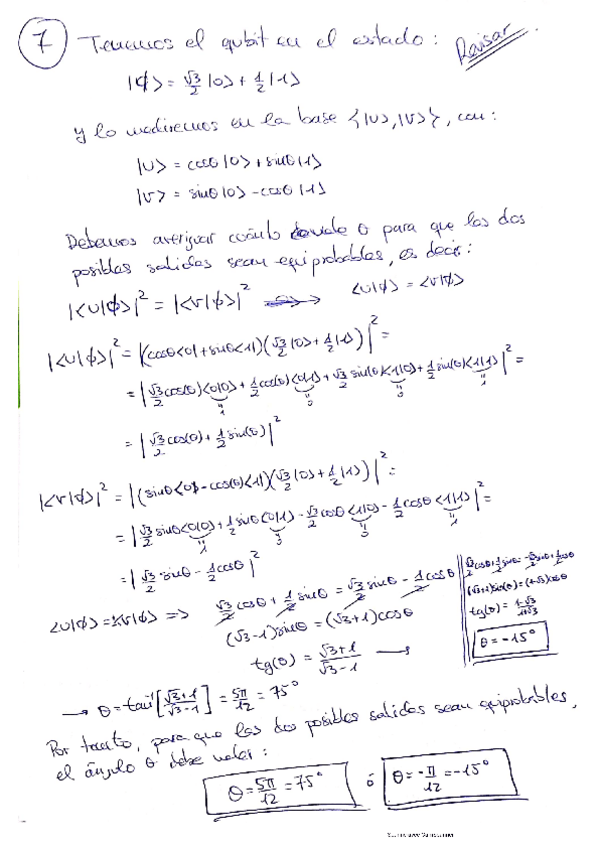 7 Tenemos el qubit en el estado: Revisar
|ϕ> = √3/2 |0> + 1/2 |1>
y lo mediremos en la base {|u>, |v>}, con:
|u> = cosθ |0> + sinθ |1>
|v> = sinθ |0> - cosθ |1>
Debemos averiguar cuánto vale θ para que las dos
posibles salidas sean equiprobables, es decir:
|<u|ϕ>|² = |<v|ϕ>|² → <u|ϕ> = <v|ϕ>
|<u|ϕ>|² = |(cosθ<0| + sinθ<1|)(√3/2 |0> + 1/2 |1>)|² =
= |√3/2 cos(θ)<0|0> + 1/2 cos(θ)<0|1> + √3/2 sin(θ)<1|0> + 1/2 sin(θ)<1|1>|² =
= |√3/2 cos(θ) + 1/2 sin(θ)|²
|<v|ϕ>|² = |(sinθ<0| - cos(θ)<1|)(√3/2 |0> + 1/2 |1>)|² =
= |√3/2 sinθ<0|0> + 1/2 sinθ<0|1> - √3/2 cosθ<1|0> - 1/2 cosθ<1|1>|² =
= |√3/2 sinθ - 1/2 cosθ|²
<u|ϕ> = <v|ϕ> => √3/2 cosθ + 1/2 sinθ = √3/2 sinθ - 1/2 cosθ
(√3-1)sinθ = (√3+1)cosθ
tg(θ) = √3+1/√3-1 →
√3/2 cosθ + 1/2 sinθ = -√3/2 sinθ + 1/2 cosθ
(√3+1)sin(θ) = (1-√3)cosθ
tg(θ) = 1-√3/1+√3
θ = -15°
→ θ = tan⁻¹[√3+1/√3-1] = 5π/12 = 75°
Por tanto, para que las dos posibles salidas sean equiprobables,
el ángulo θ debe valer:
θ = 5π/12 = 75° ó θ = -π/12 = -15°